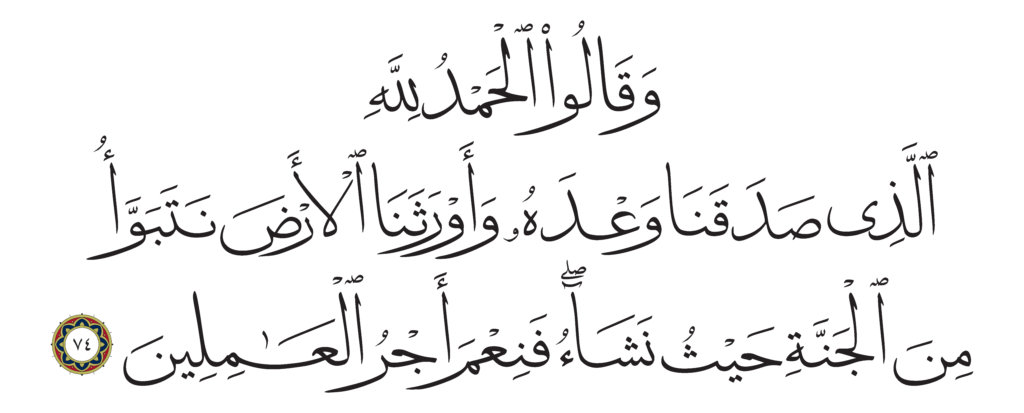 وَقَالُوا۟ ٱلْحَمْدُ لِلَّهِ
ٱلَّذِى صَدَقَنَا وَعْدَهُۥ وَأَوْرَثَنَا ٱلْأَرْضَ نَتَبَوَّأُ
مِنَ ٱلْجَنَّةِ حَيْثُ نَشَآءُ ۖ فَنِعْمَ أَجْرُ ٱلْعَـٰمِلِينَ ٧٤